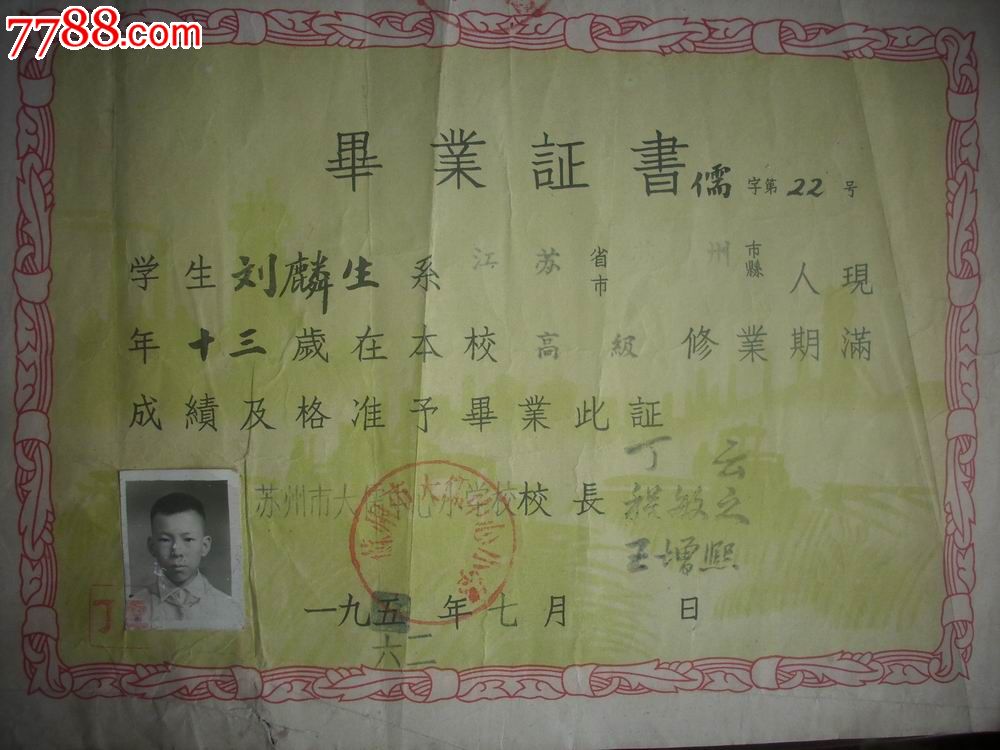 7788.com
畢業証書
儒字第22号
学生刘麟生系江苏省市 州市縣人現
年十三歲在本校高級修業期滿
成績及格准予畢業此証
丁云
苏州市大 中心小学校校長 程敏之
王增熙
一九五 年七月 日
六二
丁